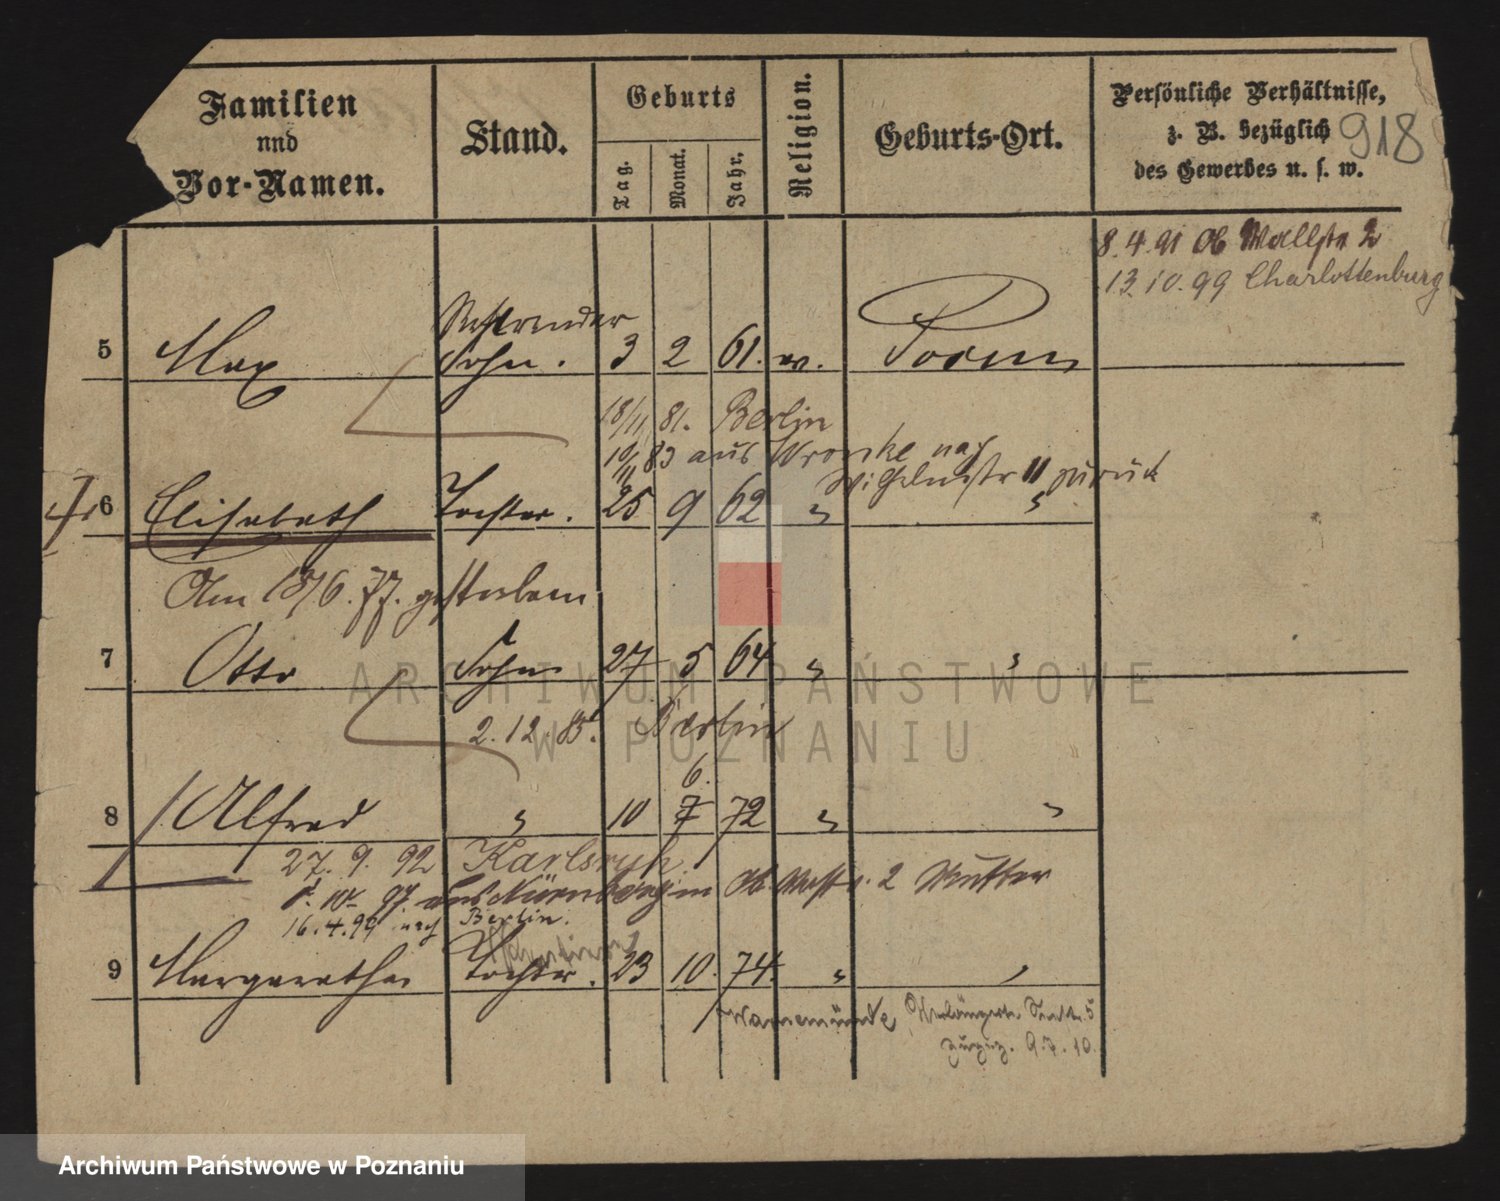 Familien
und
Vor-Namen.
Stand.
Geburts
Tag.
Monat.
Jahr.
Religion.
Geburts-Ort.
Persönliche Verhältnisse,
z. B. bezüglich
des Gewerbes u. s. w.
918
8. 4. 91 Ob Wallstr 2
13. 10. 99 Charlottenburg
Referendar
5 Max Sohn. 3 2 61. m. Posen
18/11 81. Berlin
10/11 83 aus Wronke nach
Wilhelmstr 11 zurück
6 Elisabeth Tochter. 25 9 62 " "
Am 18/6. 77. gestorben
7 Otto Sohn 27 5 64 " "
2. 12. 85. Berlin
6.
8 Alfred " 10 7 72 " "
27. 9. 92 Karlsruh
1. 10. 97 aus Nürnberg in Ob. Wallstr. 2 Mutter
16. 4. 99 nach Berlin.
9 Margarethe Tochter. 23 10. 74. " "
Warnemünde
9. 7. 10.
ARCHIWUM PAŃSTWOWE
W POZNANIU
Archiwum Państwowe w Poznaniu